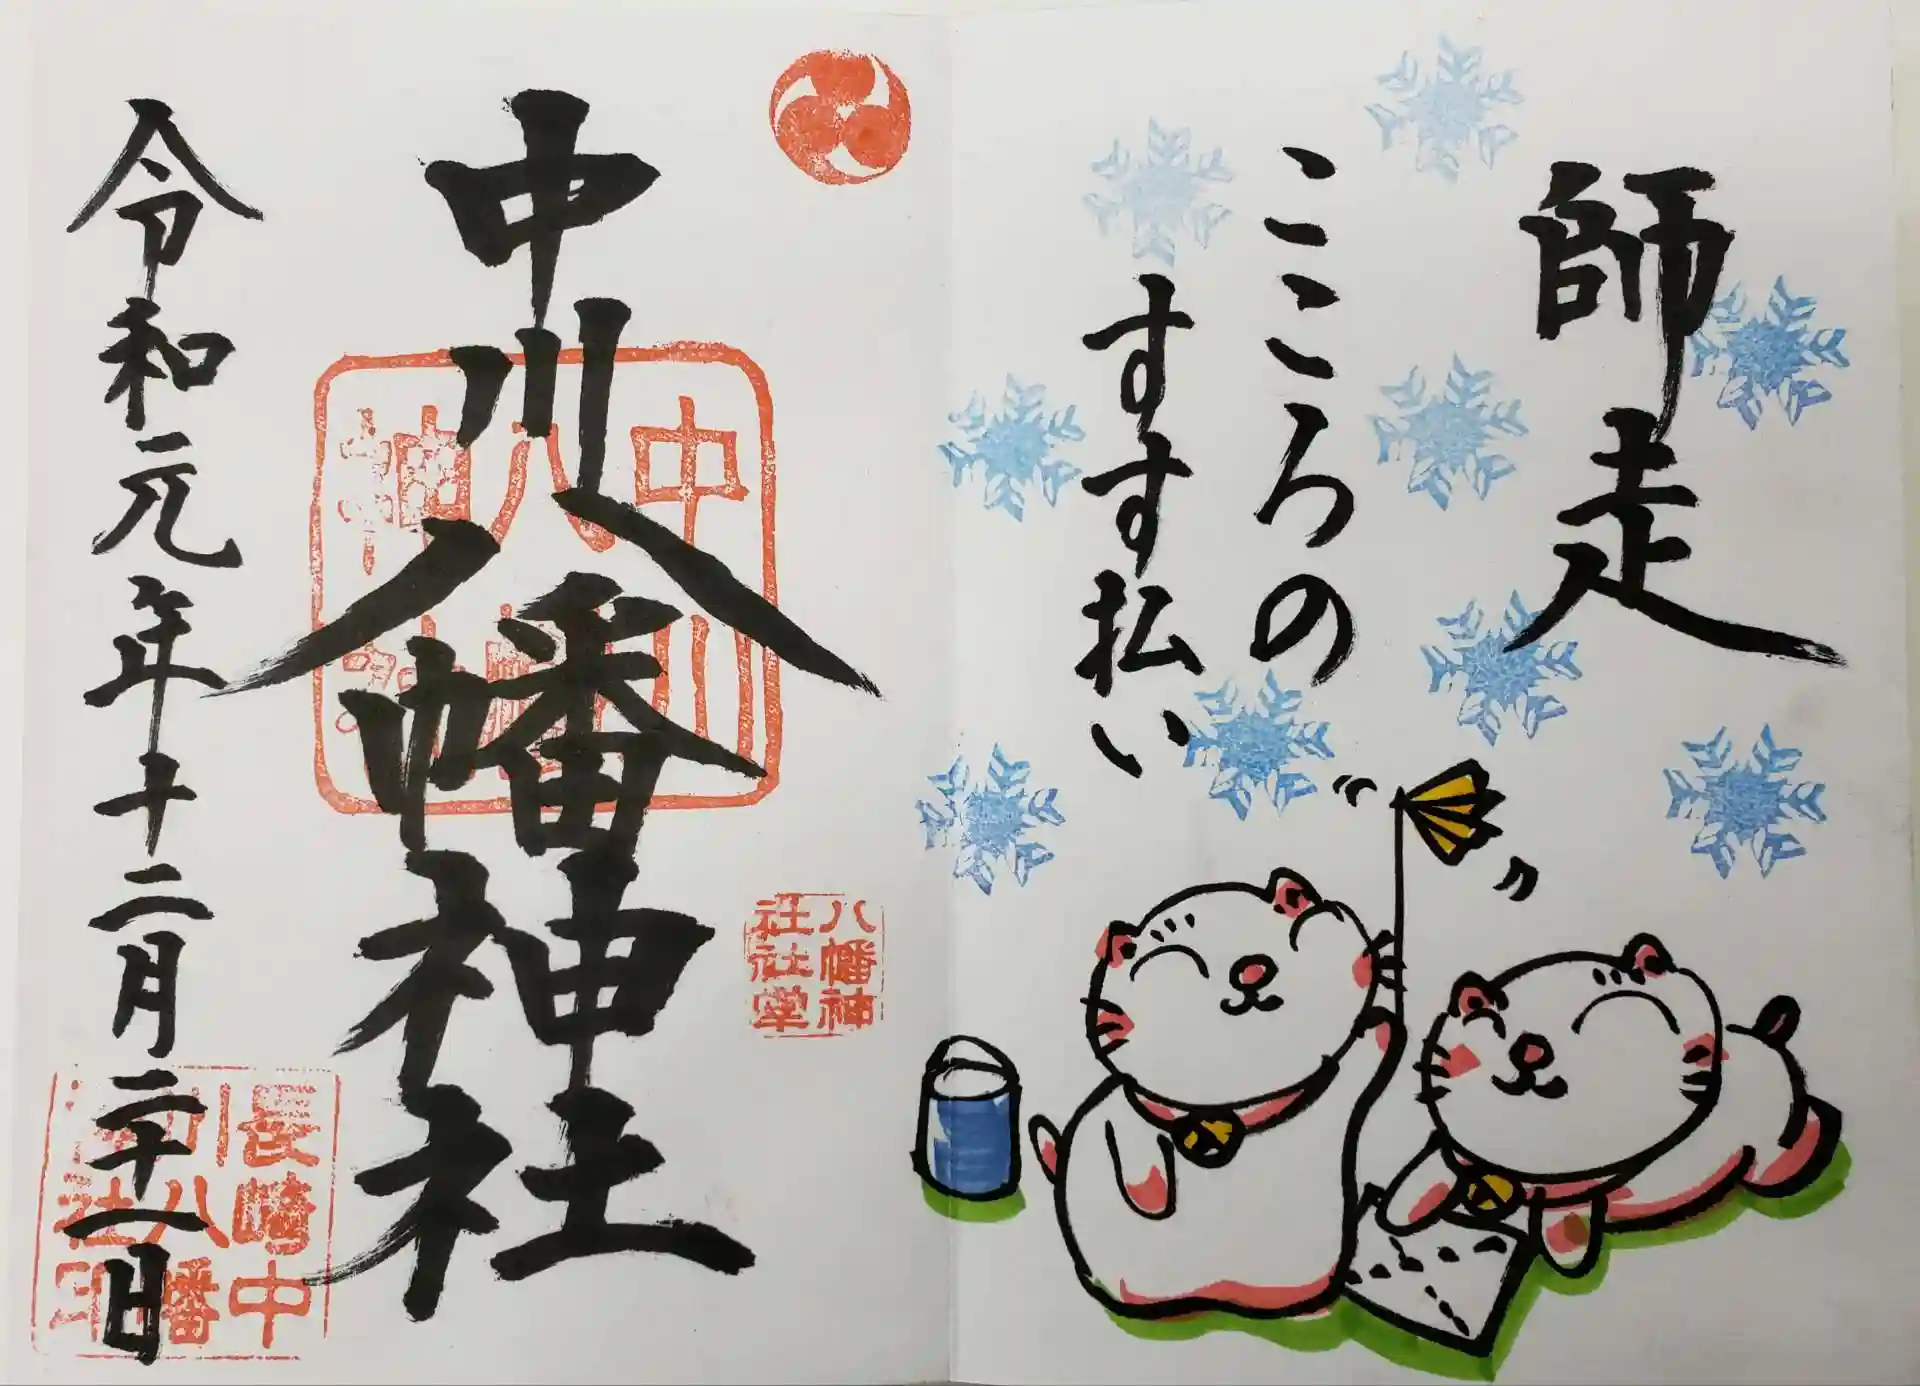 師走
こころの
すす払い
中川八幡神社
令和元年十二月二十一日
中川
八幡
神社
八幡神
社社掌
長崎中
川八幡
社印